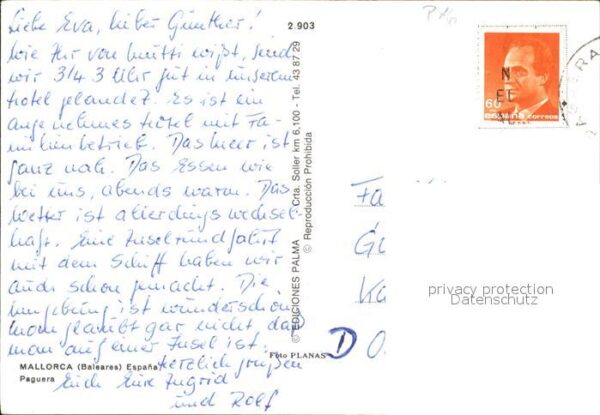 Liebe Eva, lieber Günther!
Wie Ihr von Mutti wißt, sind
wir 3/4 3 Uhr gut in unserem
Hotel gelandet. Es ist ein
angenehmes Hotel mit Fa-
milienbetrieb. Das Meer ist
ganz nah. Das Essen wie
bei uns, abends warm. Das
Wetter ist allerdings wechsel-
haft. Eine Inselrundfahrt
mit dem Schiff haben wir
auch schon gemacht. Die
Umgebung ist wunderschön
man glaubt gar nicht daß
man auf einer Insel ist.
Herzlich grüßen
Euch Eure Ingrid
und Rolf
MALLORCA (Baleares) España
Paguera
Foto PLANAS
2.903
© EDICIONES PALMA - Crta. Soller km 6,100 - Tel. 43 87 29
© Reproducción Prohibida
60
españa correos
Fa
Gü
Ka
D O
privacy protection
Datenschutz